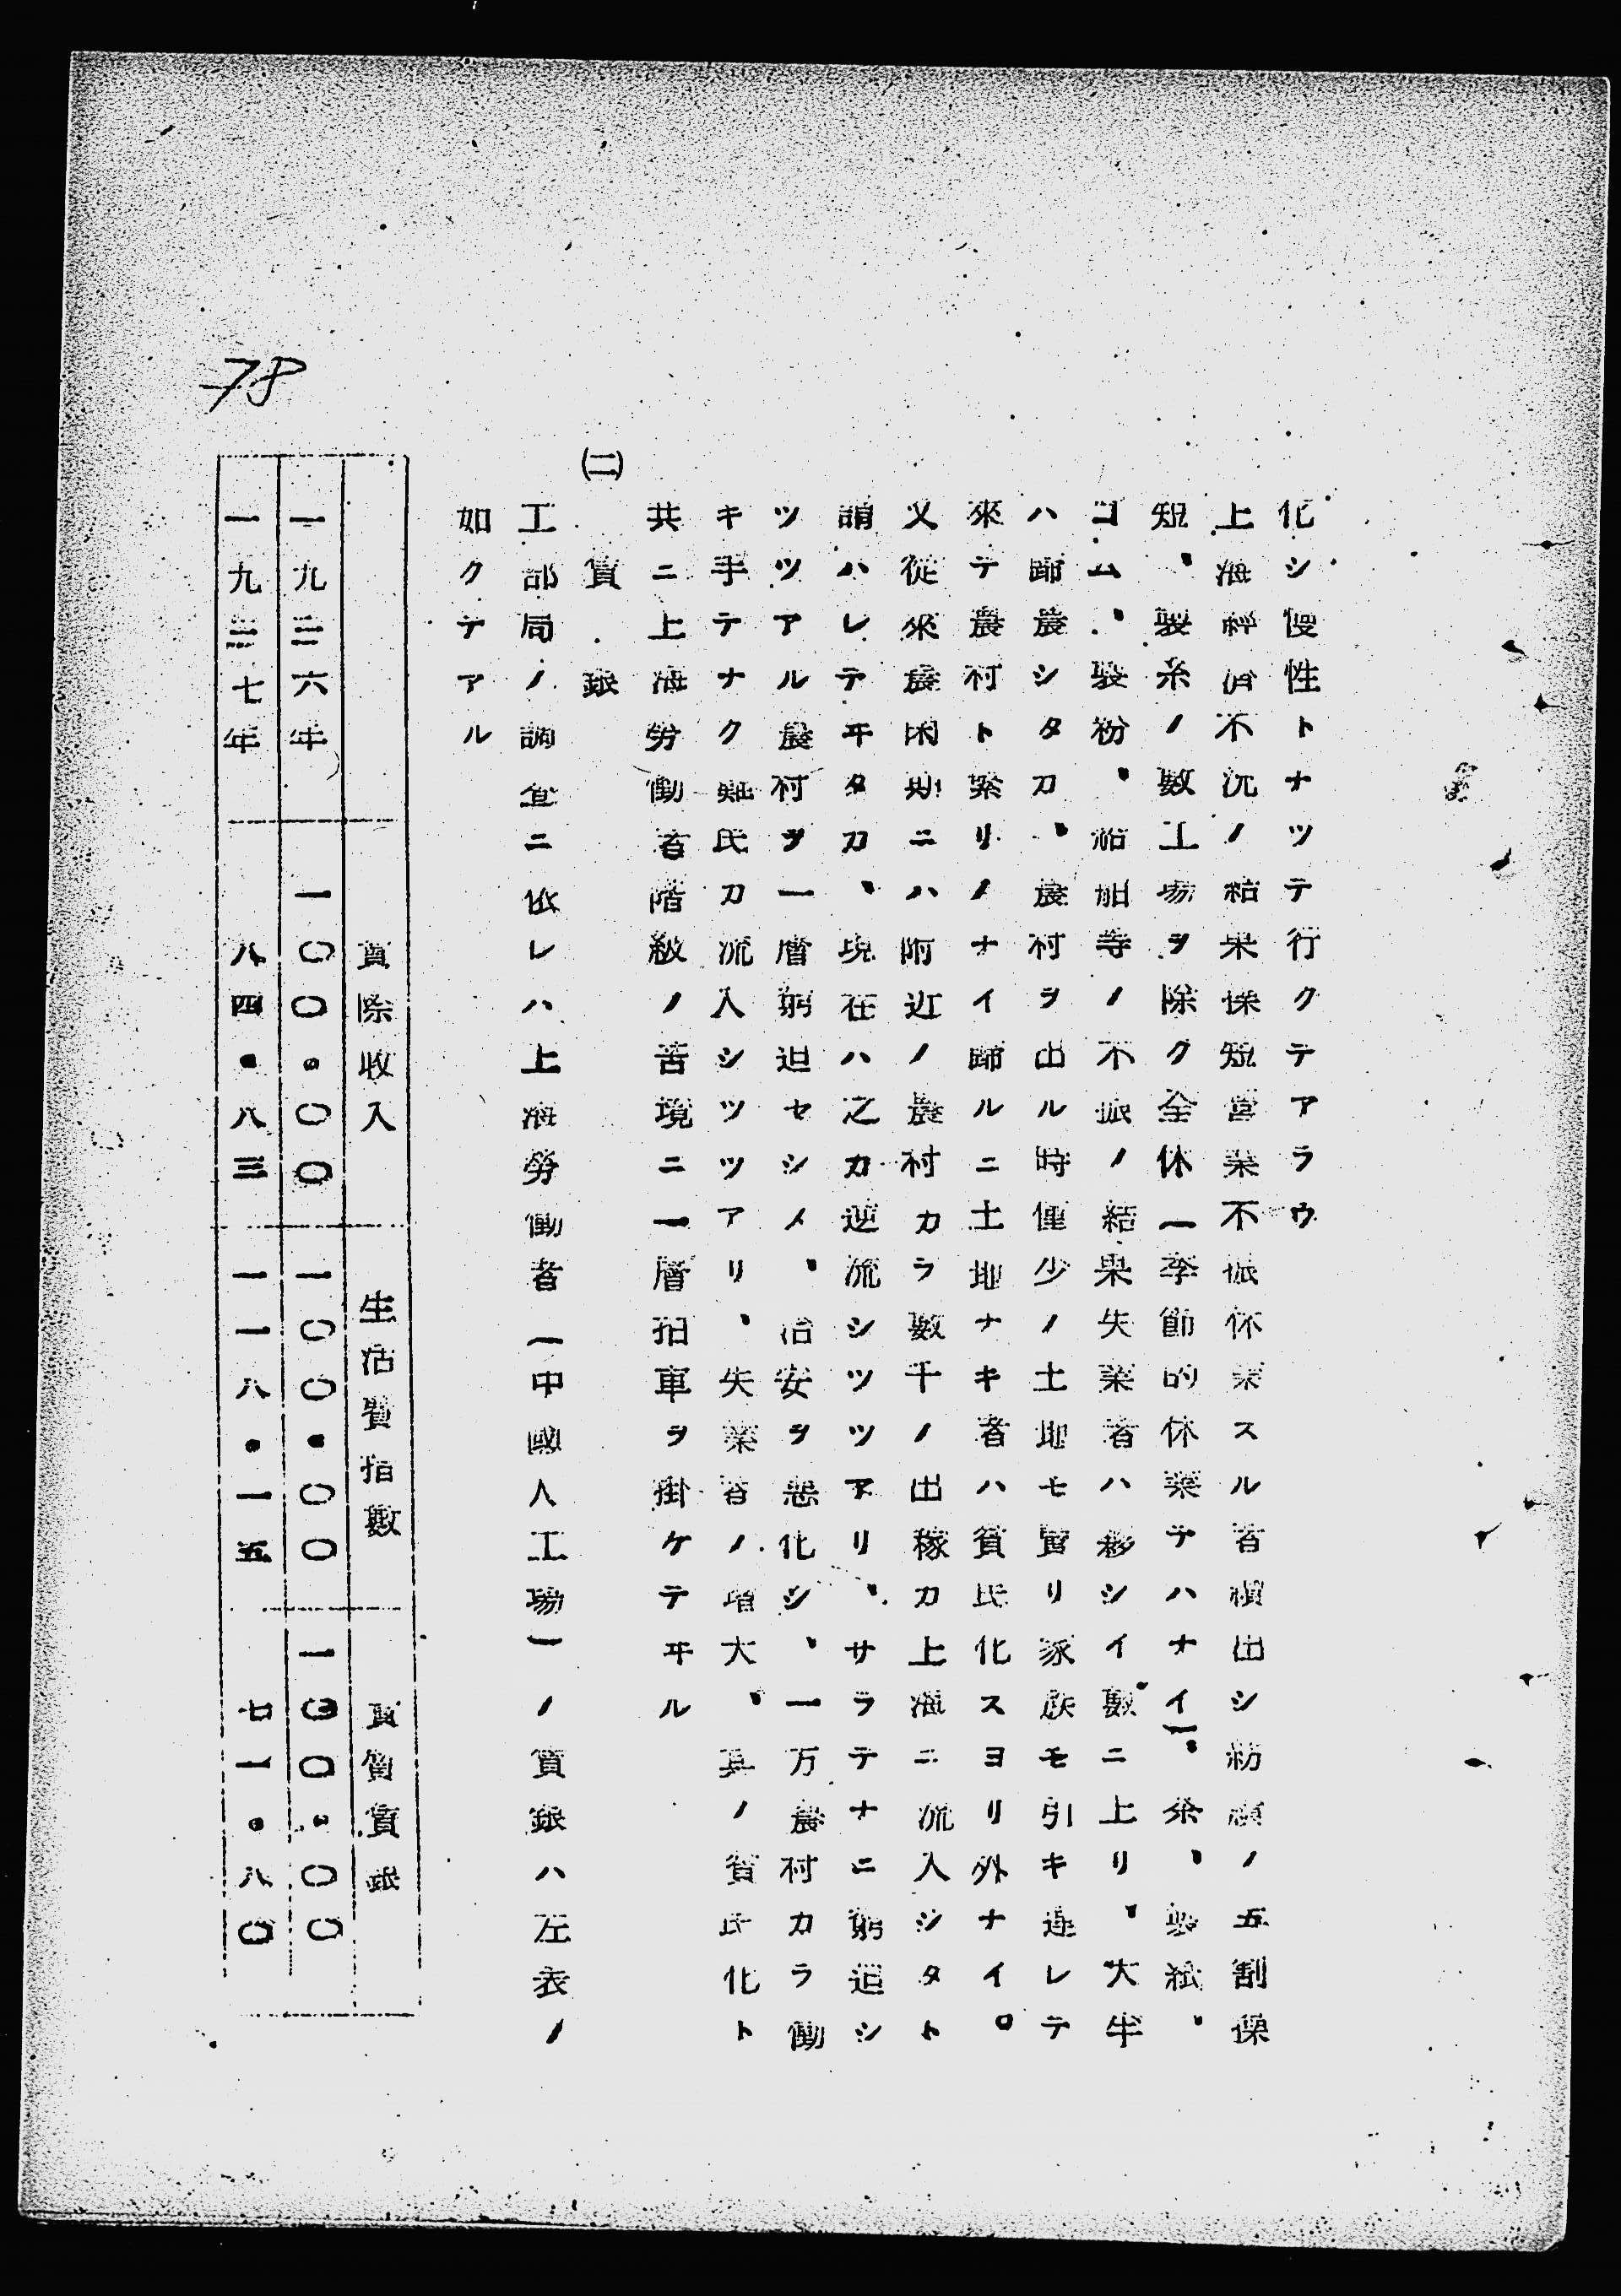 化シ慢性トナツテ行クテアラウ
上海經濟不況ノ結果操短營業不振休業スル者續出シ紡績ノ五割操
短、製糸ノ數工場ヲ除ク全休(季節的休業テハナイ)、糸、製紙、
ゴム、製粉、船舶等ノ不振ノ結果失業者ハ夥シイ數ニ上リ、大半
ハ歸農シタカ、農村ヲ出ル時僅少ノ土地モ賣リ家族モ引キ連レテ
來テ農村ト緊リノナイ歸ルニ土地ナキ者ハ貧民化スヨリ外ナイ。
又從來農閑期ニハ附近ノ農村ニカラ數千ノ出稼カ上海ニ流入シタト
謂ハレテヰタカ、現在ハ之カ逆流シツツアリ、サラテナニ窮迫シ
ツツアル農村ヲ一層窮迫セシメ、治安ヲ惡化シ、一万農村カラ働
キ手テナク難民カ流入シツツアリ、失業者ノ增大、其ノ貧民化ト
共ニ上海勞働者階級ノ苦境ニ一層拍車ヲ掛ケテヰル
(二) 賃銀
工部局ノ調査ニ依レハ上海勞働者(中國人工場)ノ賃銀ハ左表ノ
如クテアル
實際收入 生活費指數 實質賃銀
一九三六年 一〇〇.〇〇 一〇〇.〇〇 一〇〇.〇〇
一九三七年 八四.八三 一一八.一五 七一.八〇
78